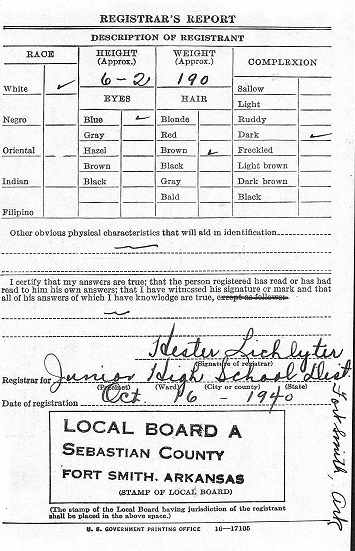 REGISTRAR'S REPORT
DESCRIPTION OF REGISTRANT
RACE
HEIGHT (Approx.)
WEIGHT (Approx.)
COMPLEXION
6-2
190
White ✓
EYES
HAIR
Sallow
Light
Negro
Blue ✓
Blonde
Ruddy
Gray
Red
Dark ✓
Oriental
Hazel
Brown ✓
Freckled
Brown
Black
Light brown
Indian
Black
Gray
Dark brown
Bald
Black
Filipino
Other obvious physical characteristics that will aid in identification
I certify that my answers are true; that the person registered has read or has had
read to him his own answers; that I have witnessed his signature or mark and that
all of his answers of which I have knowledge are true, except as follows:
Hester Lichlyter
(Signature of registrar)
Registrar for Junior High School Dist
(Precinct) (Ward) (City or county) (State)
Fort Smith, Ark
Date of registration Oct. 16 - 1940
LOCAL BOARD A
SEBASTIAN COUNTY
FORT SMITH, ARKANSAS
(STAMP OF LOCAL BOARD)
(The stamp of the Local Board having jurisdiction of the registrant
shall be placed in the above space.)
U. S. GOVERNMENT PRINTING OFFICE 16—17105